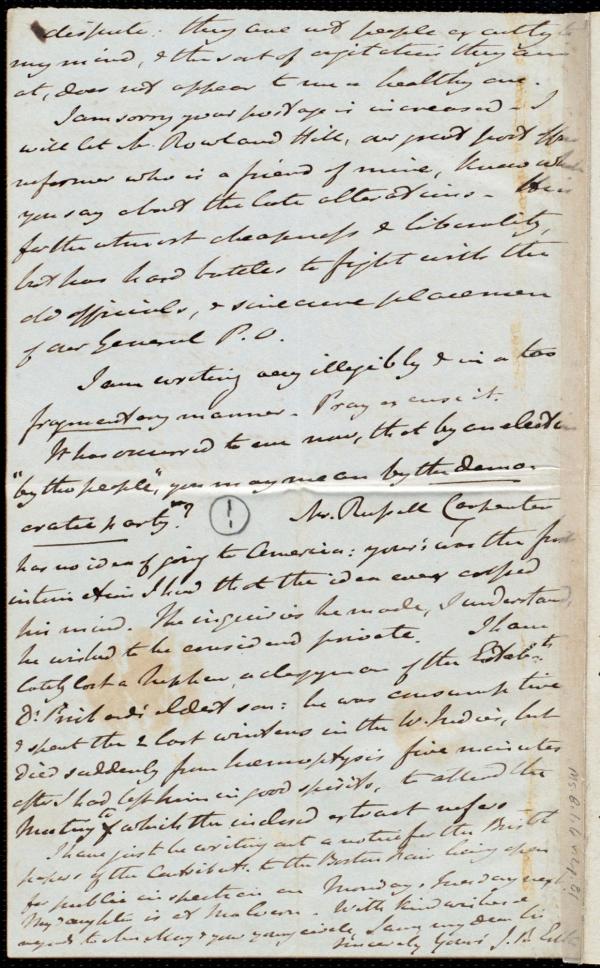 dispute: they are not people exactly to
my mind, & the sort of agitation they aim
at, does not appear to me a healthy one.
I am sorry your postage is increased - I
will let Mr. Rowland Hill, our great post office
reformer who is a friend of mine, know what
you say about the late alterations - He is
for the utmost cheapness & liberality,
but has hard battles to fight with the
old officials, & sinecure placemen
of our General P.O.
I am writing very illegibly & in a too
fragmentary manner - Pray excuse it.
It has occurred to me now, that by an election
"by the people", you may mean by the demo-
cratic party"? Mr. Russell Carpenter
has no idea of going to America: your's was the first
intimation I had that the idea ever crossed
his mind. The inquiries he made, I understand,
he wished to be considered private. I have
lately lost a Nephew, a clergyman of the Establt.,
Dr. Prichard's eldest son: he was consumptive
& spent the 2 last winters in the W. Indies, but
died suddenly from hæmoptysis five minutes
after I had left him in good spirits, to attend the
Meeting to which the inclosed extract refers
I have just be writing out a notice for the Bristol
papers of the Contribts. to the Boston Fair being open
for public inspection on Monday & Tuesday next.
My daughter is at Malvern - With kind wishes &
regards to Mrs. May & your young circle, I am, my dear Sir
sincerely Yours J. B. Estlin
Ms. B. 1. 6 v. 2, p. 18